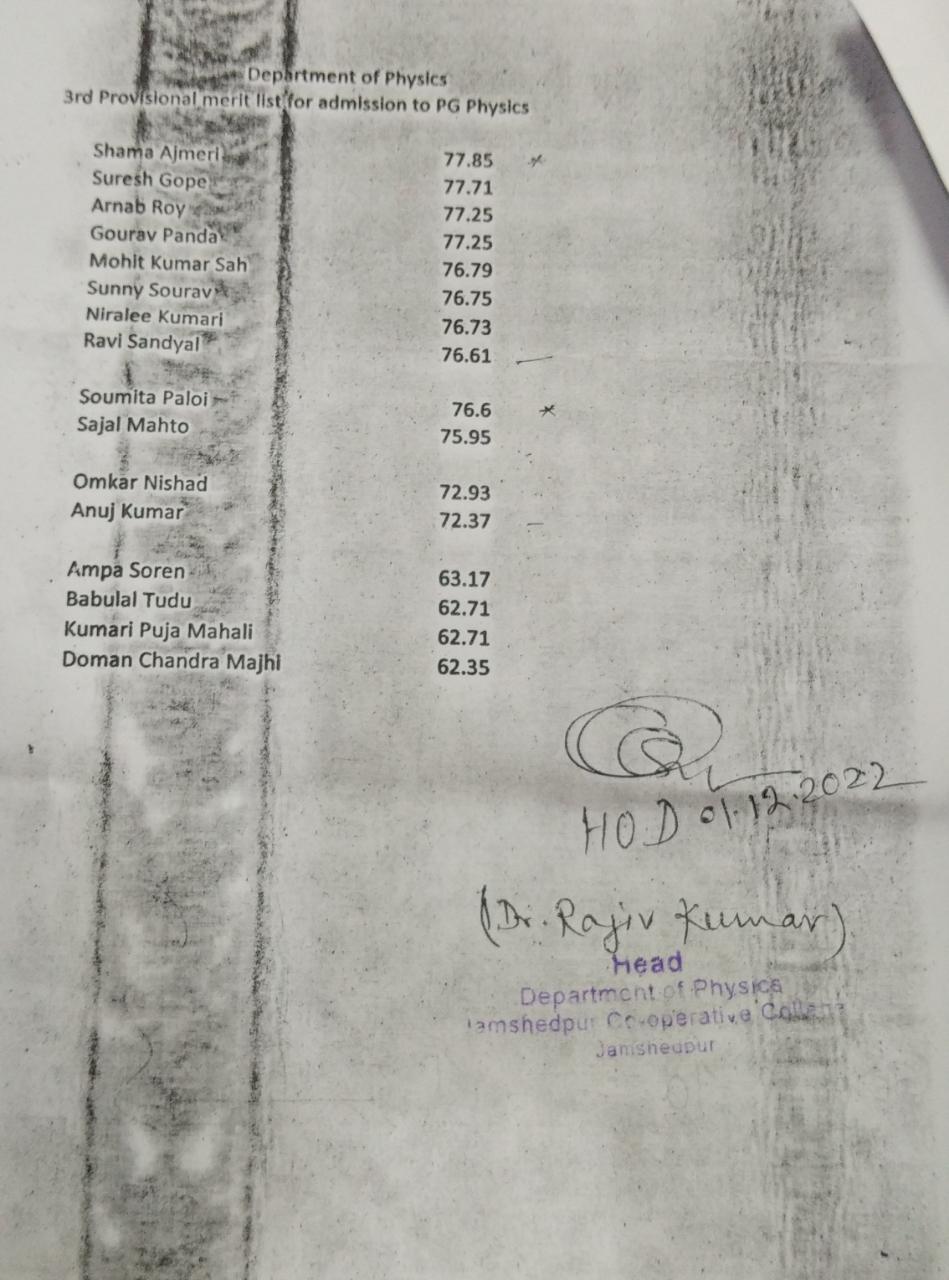 Department of Physics
3rd Provisional merit list for admission to PG Physics
Shama Ajmeri 77.85 *
Suresh Gope 77.71
Arnab Roy 77.25
Gourav Panda 77.25
Mohit Kumar Sah 76.79
Sunny Sourav 76.75
Niralee Kumari 76.73
Ravi Sandyal 76.61 —
Soumita Paloi 76.6 *
Sajal Mahto 75.95
Omkar Nishad 72.93
Anuj Kumar 72.37 —
Ampa Soren 63.17
Babulal Tudu 62.71
Kumari Puja Mahali 62.71
Doman Chandra Majhi 62.35
HOD 01.12.2022
(Dr. Rajiv Kumar)
Head
Department of Physics
Jamshedpur Co-operative College
Jamshedpur